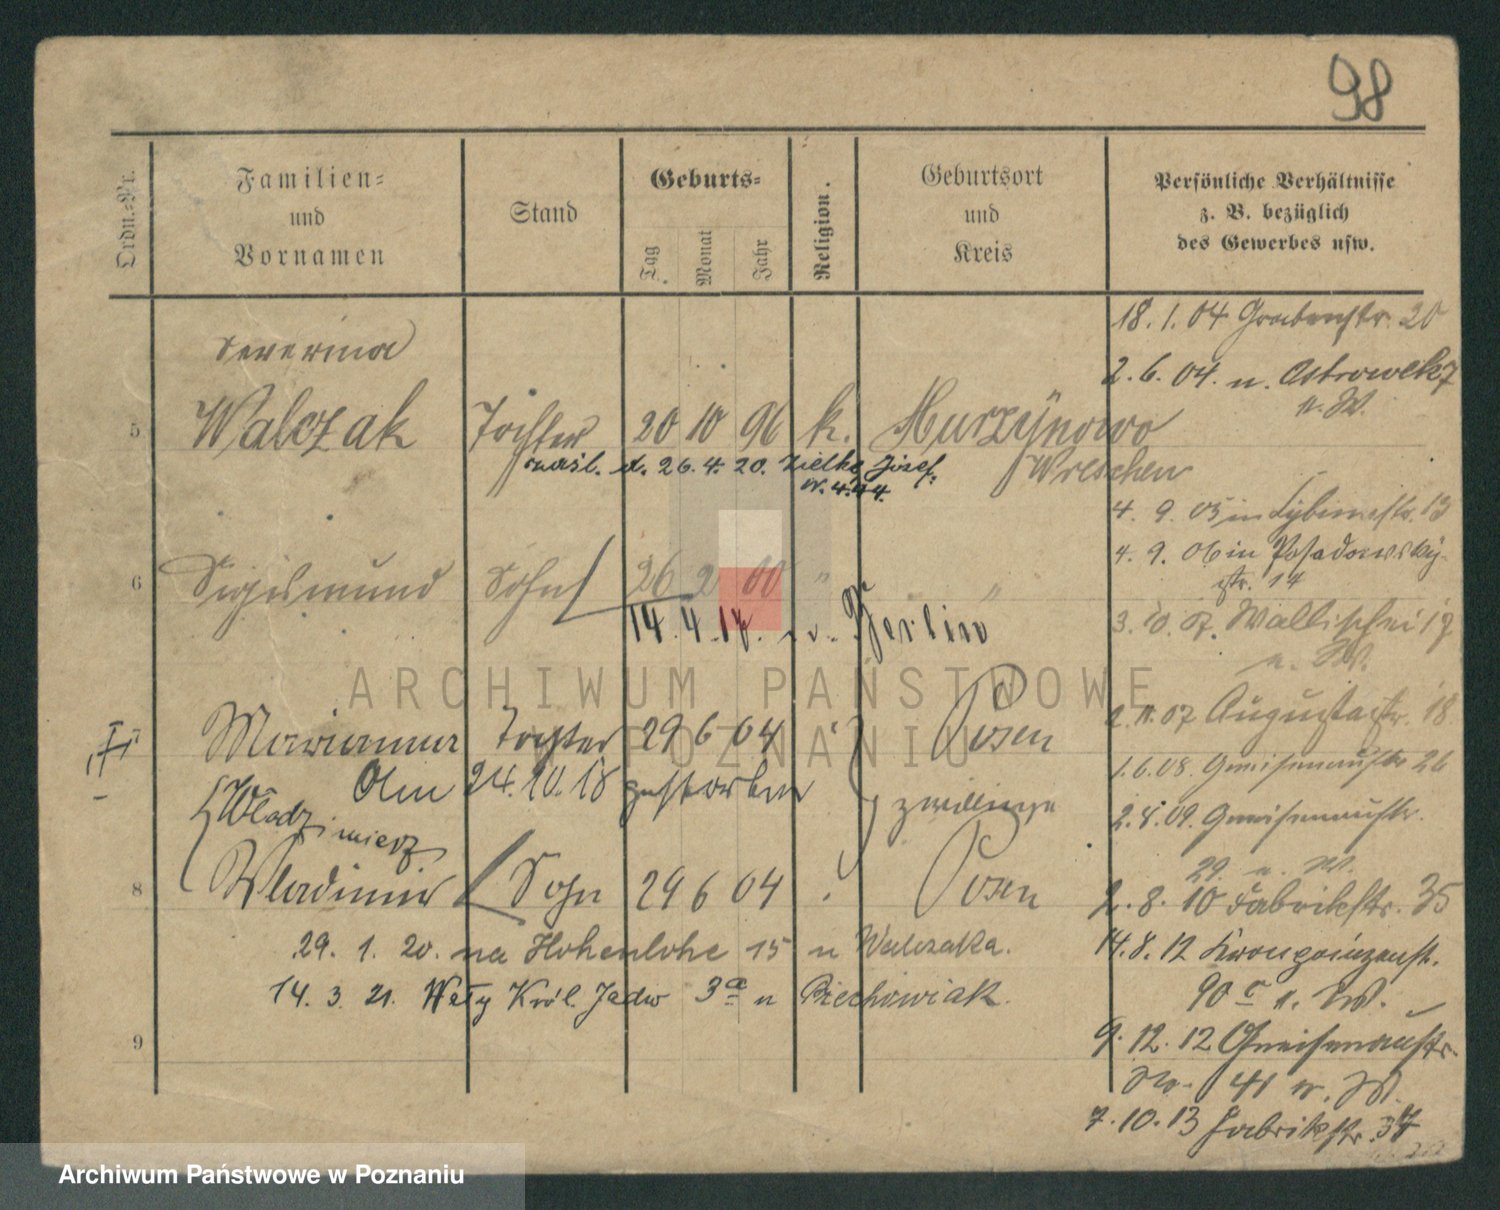 98
Ordn.-Nr.
Familien-
und
Vornamen
Stand
Geburts-
Tag
Monat
Jahr
Religion.
Geburtsort
und
Kreis
Persönliche Verhältnisse
z. B. bezüglich
des Gewerbes usw.
18. 1. 04 Grabenstr. 20
Severina
2. 6. 04. n. Ostrowek 7
n. W.
5 Walczak Tochter 20 10 96 k. Murzynowo
Wreschen
d. 26. 4. 20. Zielke Józef.
4. 9. 05 in 13
4. 9. 06 in Posadowsky-
str. 14
6 Sigismund Sohn 26 2 00 " "
14. 4. 18. Berlin
3. 10. 07. Wallischei 17
n. W.
2. 11. 07 Augustastr. 18
7 Marianna Tochter 29 6 04 Posen
1. 6. 08. Gneisenaustr 26
24. 10. 18 gestorben
Zwillinge
2. 8. 09. Gneisenaustr.
29. n. W.
Włodzimierz
8 Wladimir Sohn 29 6 04 Posen
2. 8. 10 Fabrikstr. 35
29. 1. 20. na Hohenlohe 15 u Walczaka.
14. 8. 12 Kronprinzenstr.
90 n. W.
14. 3. 21. Wały Król. Jadw 3a u Piechowiak.
9
9. 12. 12 Gneisenaustr.
No. 41 n. W.
7. 10. 13 Fabrikstr. 37
ARCHIWUM PAŃSTWOWE
W POZNANIU
Archiwum Państwowe w Poznaniu